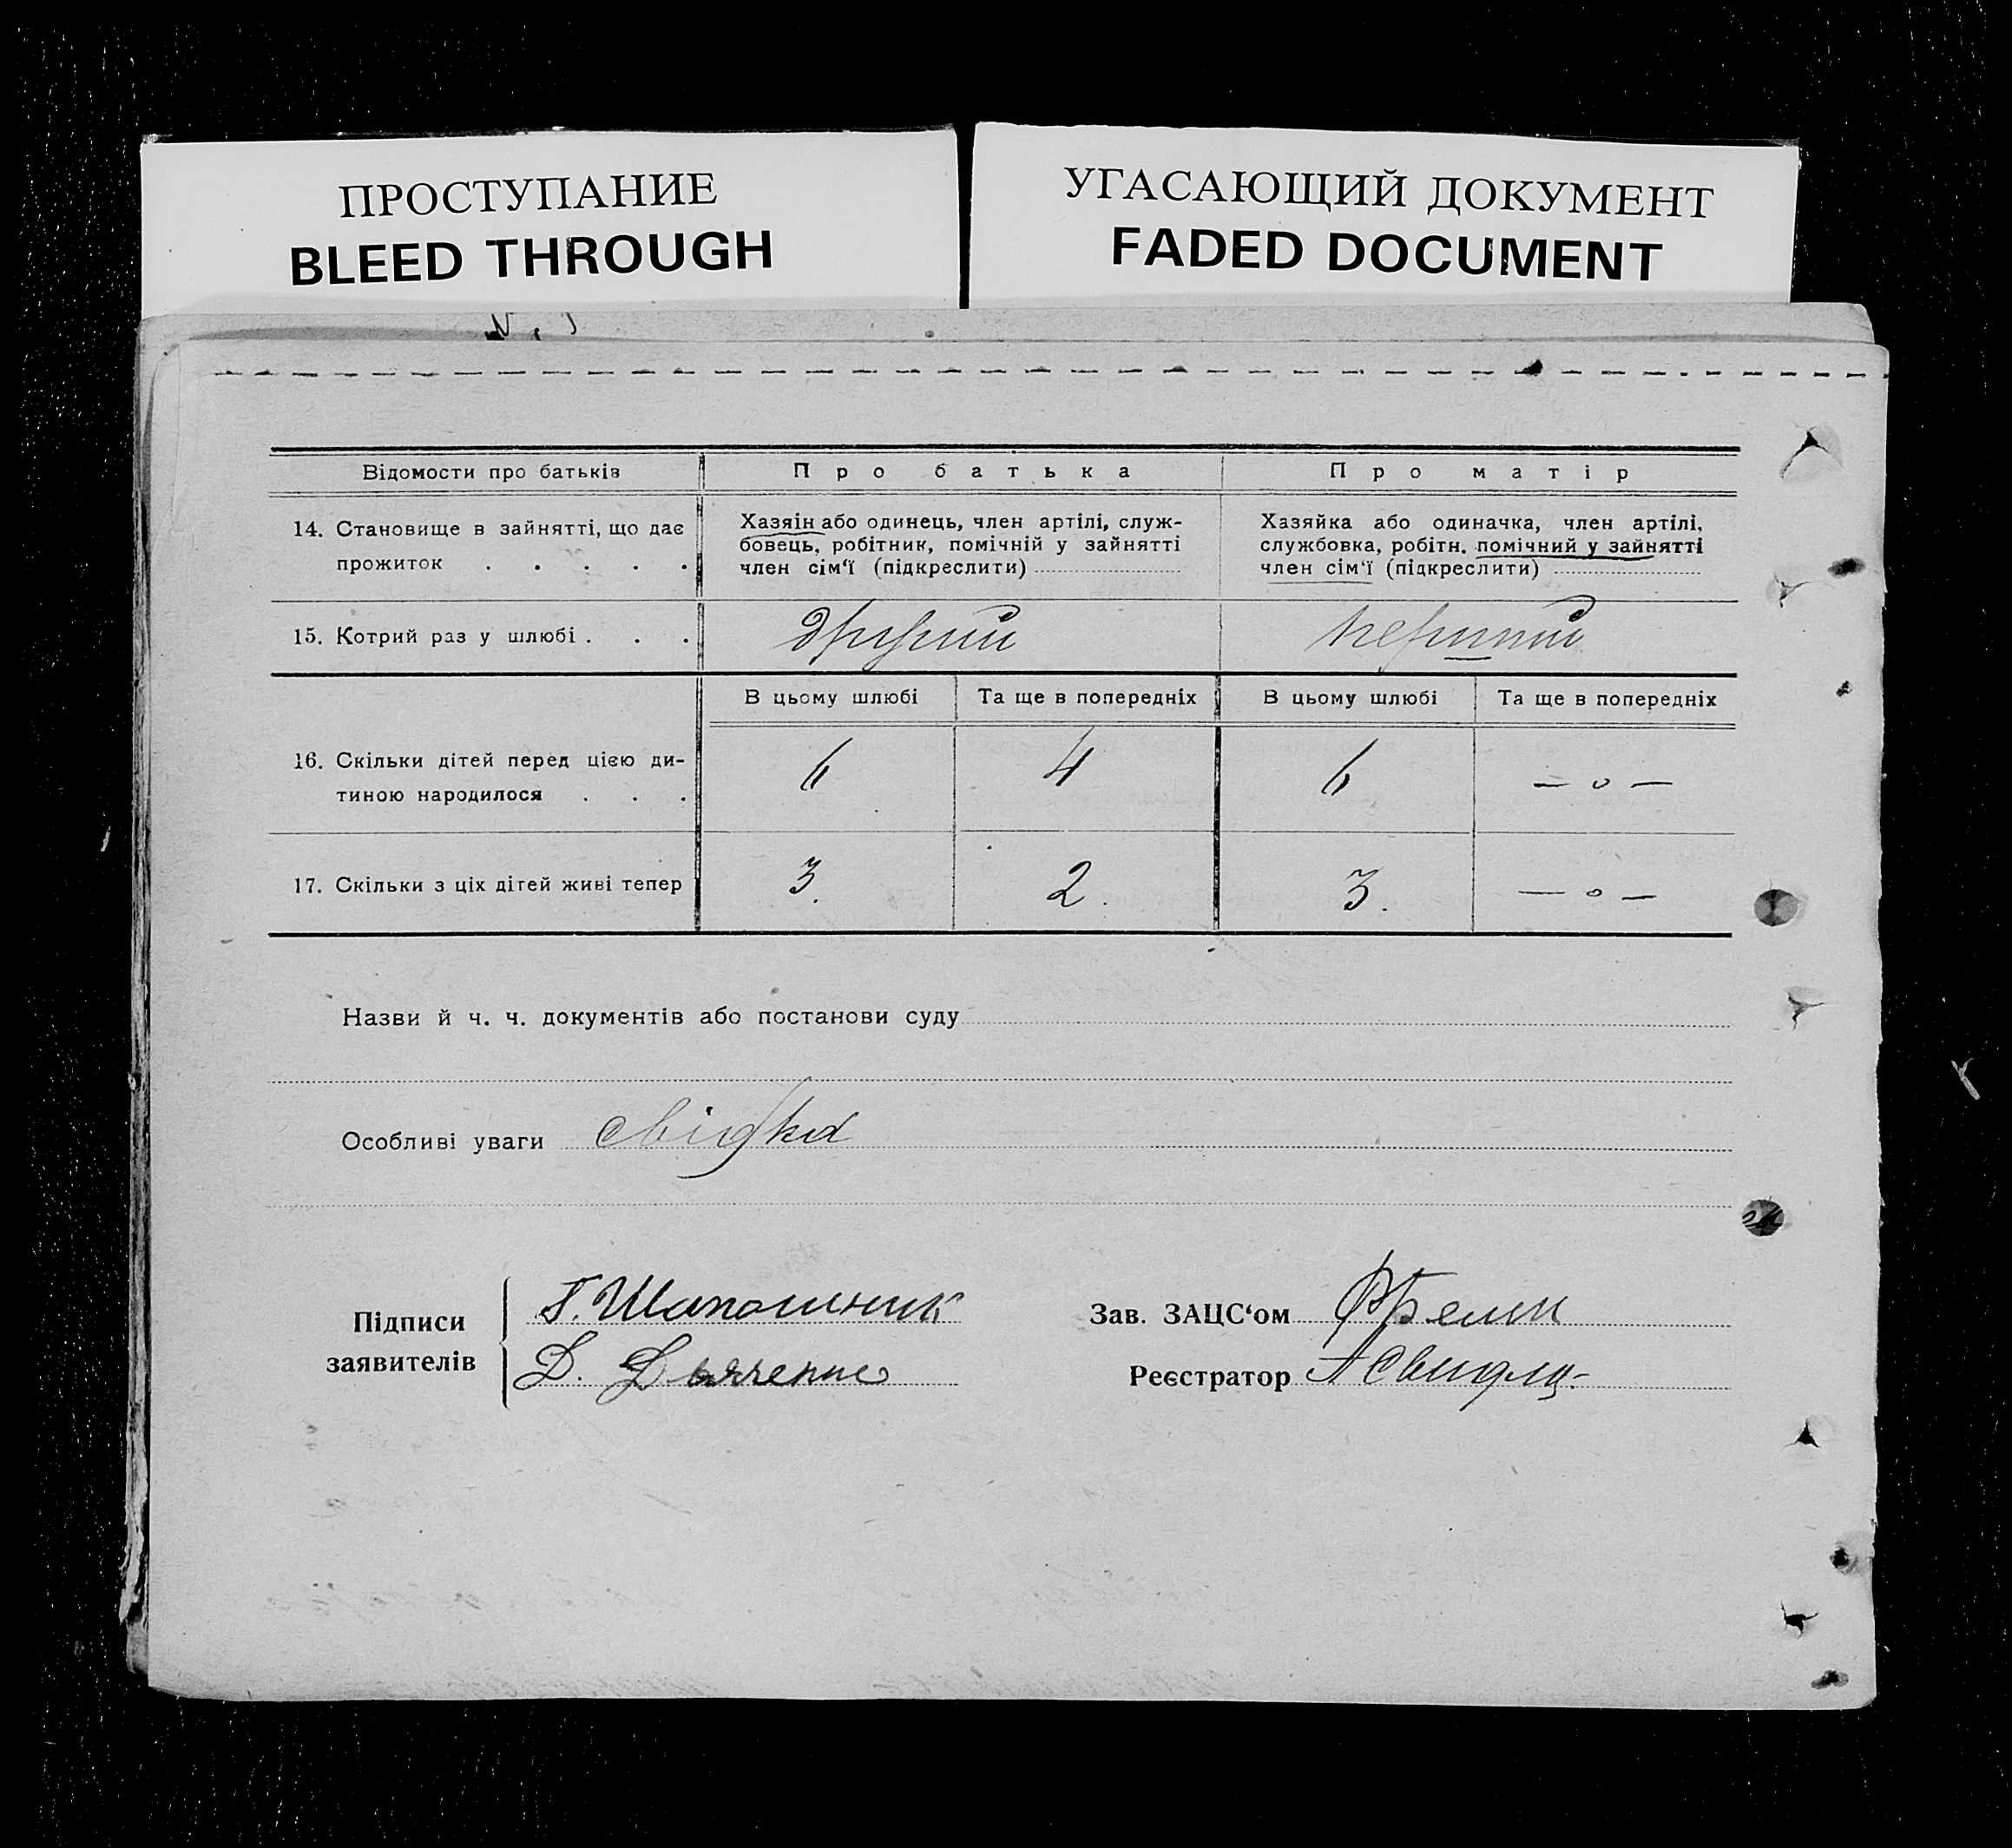 ПРОСТУПАНИЕ
BLEED THROUGH
УГАСАЮЩИЙ ДОКУМЕНТ
FADED DOCUMENT
Відомости про батьків
Про батька
Про матір
14. Становище в зайнятті, що дає
прожиток . . . . .
Хазяін або одинець, член артілі, служ-
бовець, робітник, помічній у зайнятті
член сім'ї (підкреслити)
Хазяйка або одиначка, член артілі,
службовка, робітн. помічний у зайнятті
член сім'ї (підкреслити)
15. Котрий раз у шлюбі . . .
другий
перший
В цьому шлюбі
Та ще в попередніх
В цьому шлюбі
Та ще в попередніх
16. Скільки дітей перед цією ди-
тиною народилося . . .
6
4
6
— о —
17. Скільки з ціх дітей живі тепер
3.
2.
3.
— о —
Назви й ч. ч. документів або постанови суду
Особливі уваги свідка
Підписи
заявителів
Г. Шапошник
Д. Дьяченко
Зав. ЗАЦС'ом
Реєстратор